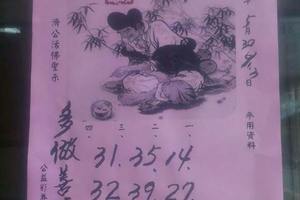 濟公活佛聖示
5月30
日
平用資料
四、三、二、一、
多做善
31. 35. 14.
32 39. 27.
公益彩券